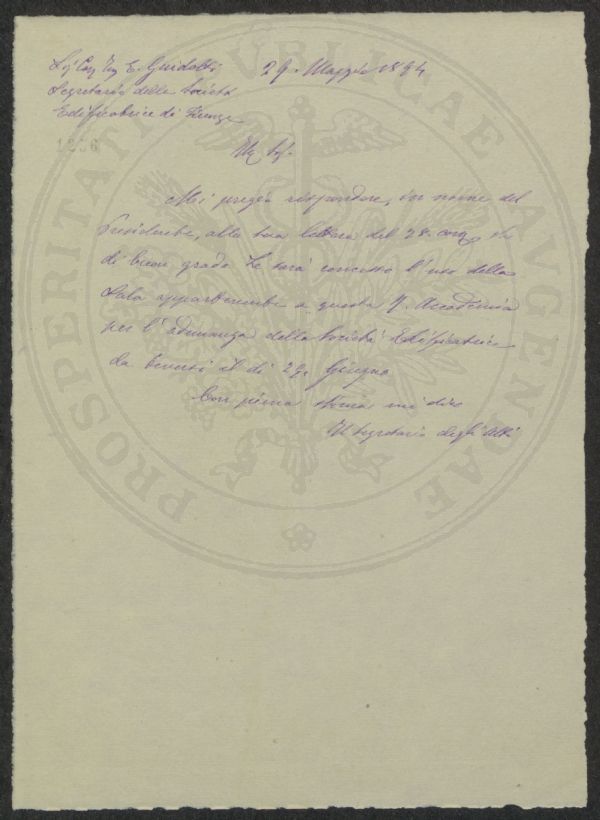 Sig Cav Ing E. Guidotti 29. Maggio 1894
Segretario della Società
Edificatrice di Firenze
1856
Ill. Sig.
Mi pregio rispondere, in nome del
Presidente, alla sua lettera del 28. corr. che
di buon grado Le sarà concesso l'uso della
Sala appartenente a questa R. Accademia
per l'adunanza della Società Edificatrice
da tenersi il dì 29. Giugno
Con piena stima mi dico
Il Segretario degli Atti
PROSPERITATI PVBLICAE AVGENDAE